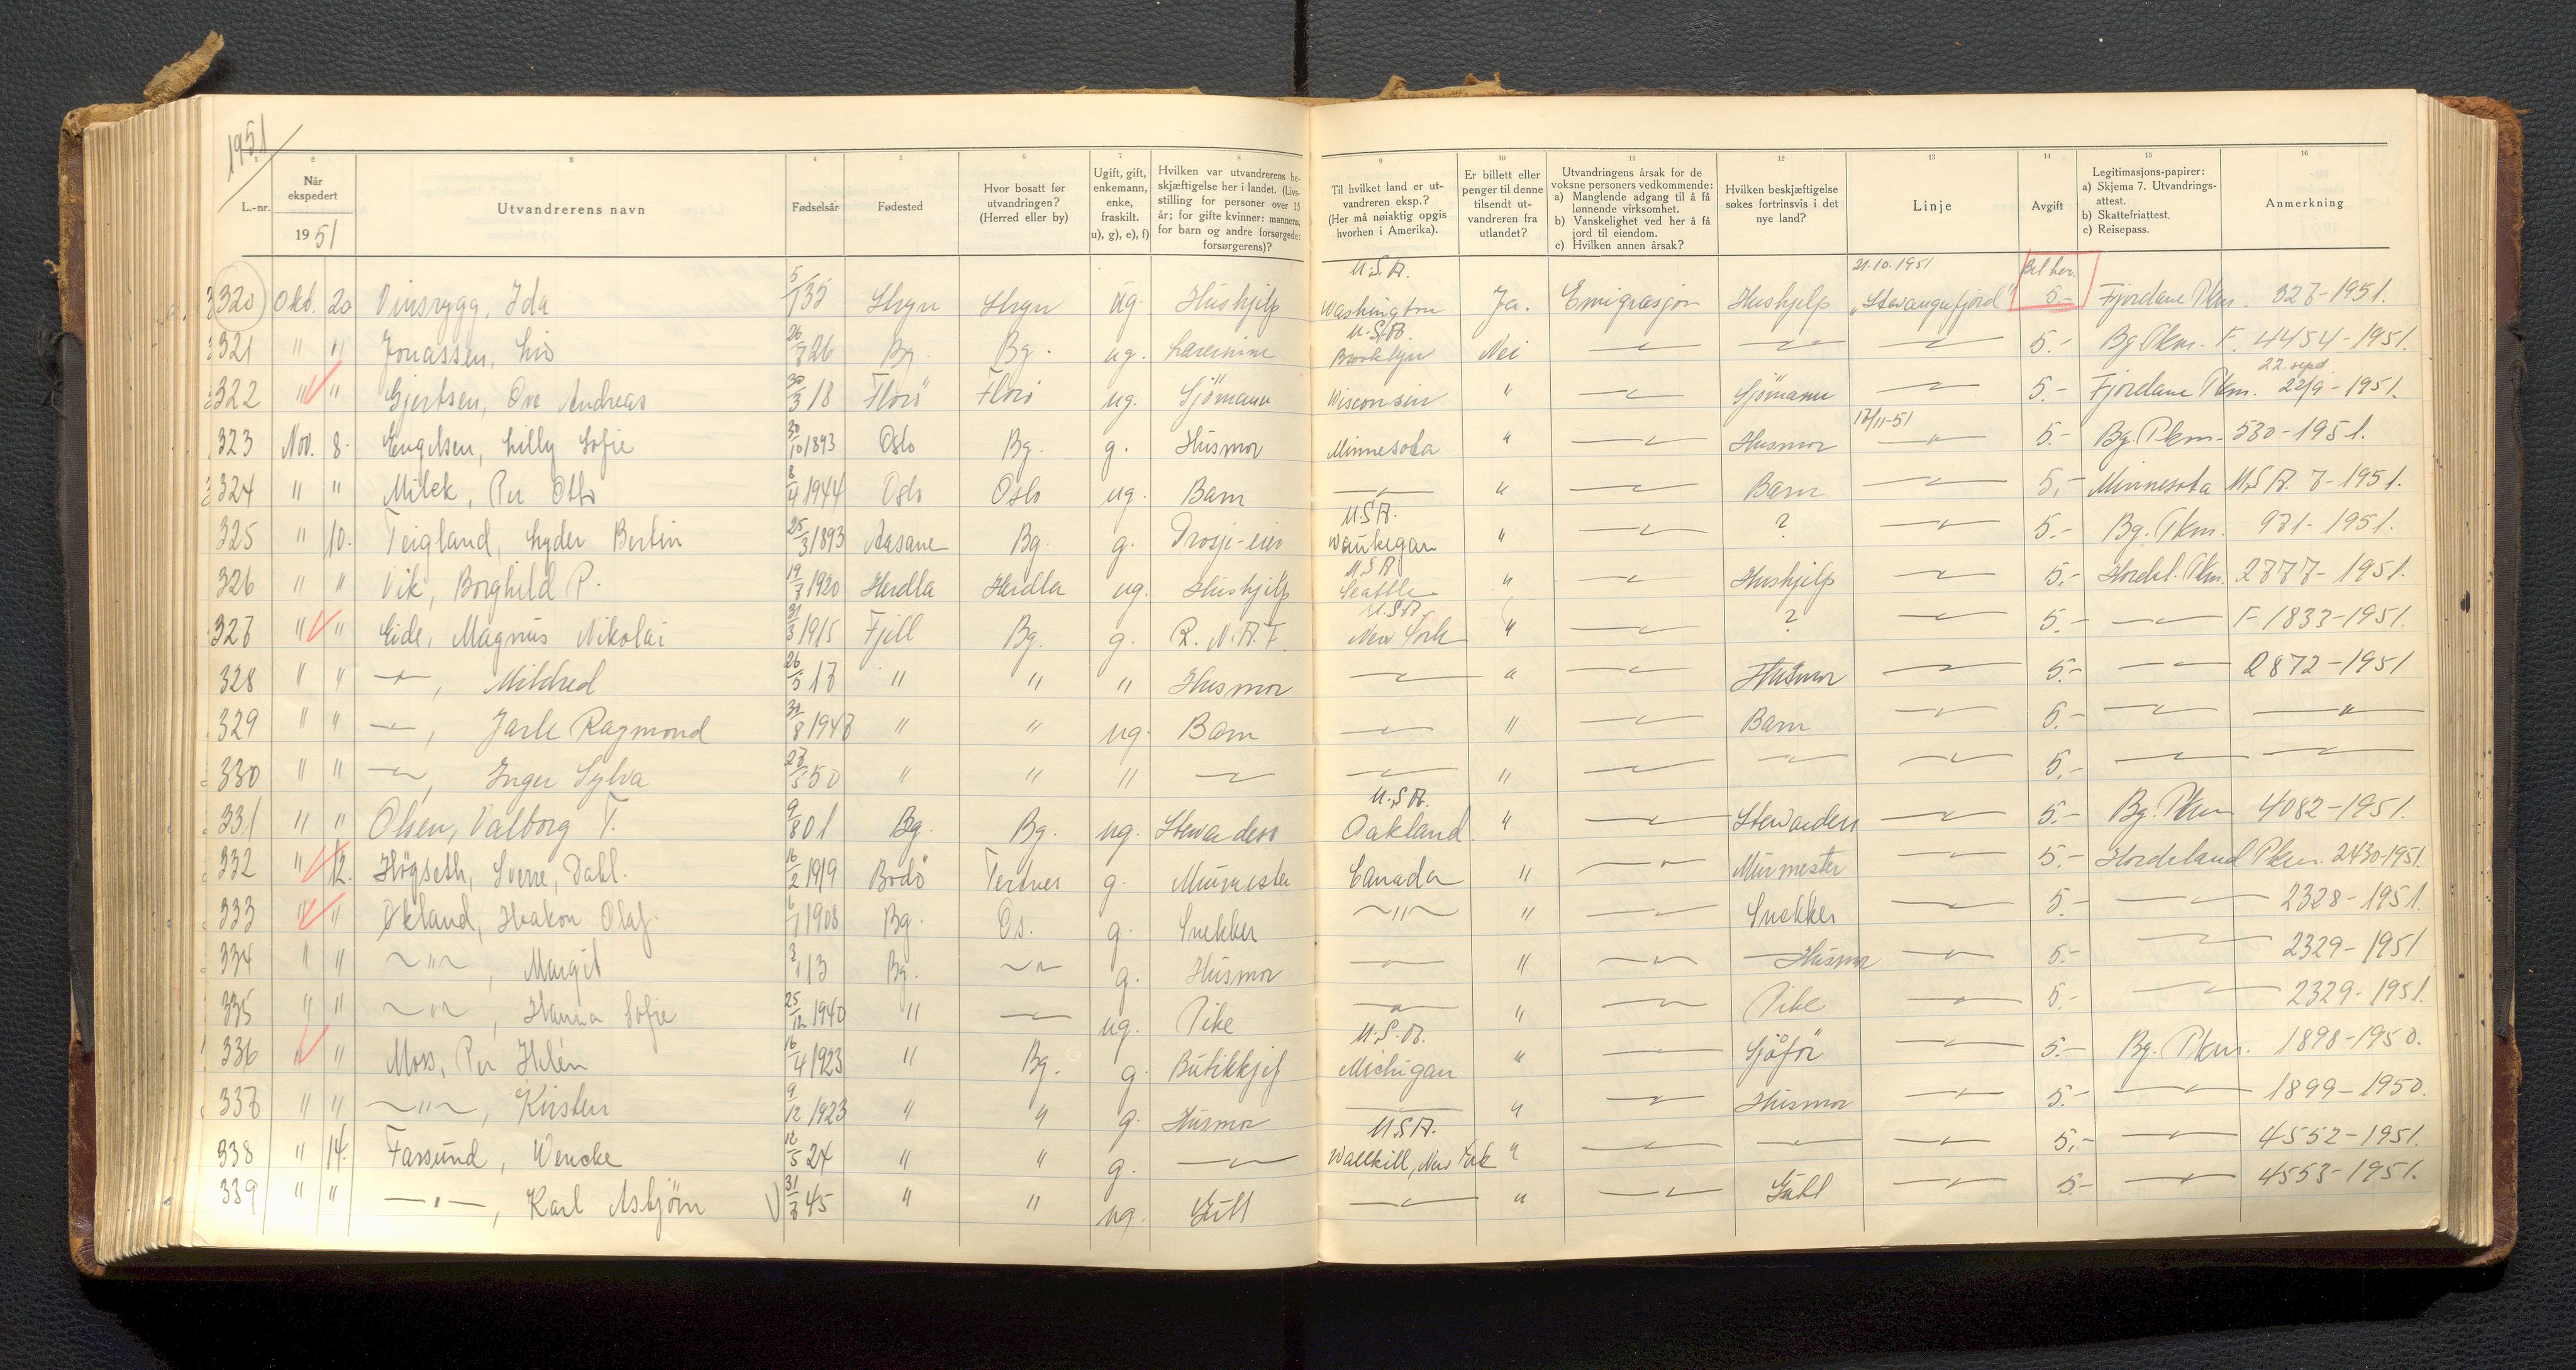 1951
1 2 3 4 5 6 7 8 9 10 11 12 13 14 15 16
L.-nr.
Når ekspedert
1951
Utvandrerens navn
Fødselsår
Fødested
Hvor bosatt før utvandringen? (Herred eller by)
Ugift, gift, enkemann, enke, fraskilt. u), g), e), f)
Hvilken var utvandrerens beskjæftigelse her i landet. (Livsstilling for personer over 15 år; for gifte kvinner: mannens, for barn og andre forsørgede: forsørgerens)?
Til hvilket land er utvandreren eksp.? (Her må nøiaktig opgis hvorhen i Amerika).
Er billett eller penger til denne tilsendt utvandreren fra utlandet?
Utvandringens årsak for de voksne personers vedkommende: a) Manglende adgang til å få lønnende virksomhet. b) Vanskelighet ved her å få jord til eiendom. c) Hvilken annen årsak?
Hvilken beskjæftigelse søkes fortrinsvis i det nye land?
Linje
Avgift
Legitimasjons-papirer: a) Skjema 7. Utvandringsattest. b) Skattefriattest. c) Reisepass.
Anmerkning
U.S.A. 21.10.1951
320 Okt. 20 Vinsrygg, Ida 5/1 35 Stryn Stryn ug. Hushjelp Washington Ja. Emigrasjon Hushjelp "Stavangerfjord" 5.- Fjordane Pkm. 327-1951.
U.S.A.
321 " " Jonassen, Liv 26/7 26 Bg. Bg. ug. Lærerinne Brooklyn Nei —"— —"— —"— 5.- Bg. Pkm. F. 4454-1951.
22. sept.
322 " " Gjertsen, Ove Andreas 30/3 18 Florö Florö ug. Sjömann Wisconsin " —"— Sjömann —"— 5.- Fjordane Pkm. 22/9-1951.
17/11-51
323 Nov. 8. Engelsen, Lilly Sofie 30/10 1893 Oslo Bg. g. Husmor Minnesota " —"— Husmor —"— 5.- Bg. Pkm. 530-1951.
324 " " Milek, Per Otto 8/4 1944 Oslo Oslo ug. Barn —"— " —"— Barn —"— 5.- Minnesota U.S.A. 7-1951.
U.S.A.
325 " 10. Teigland, Lyder Bertin 25/3 1893 Aasane Bg. g. Drosje-eier Waukegan " —"— ? —"— 5.- Bg. Pkm. 971-1951.
U.S.A.
326 " " Vik, Borghild P. 19/7 1920 Herdla Herdla ug. Hushjelp Seattle " —"— Hushjelp —"— 5.- Hordal. Pkm. 2777-1951.
U.S.A.
327 " " Eide, Magnus Nikolai 31/3 1915 Fjell Bg. g. R.N.A.F. New York " —"— ? —"— 5.- —"— F-1833-1951.
328 " " —"—, Mildred 26/5 17 " " " Husmor —"— " —"— Husmor —"— 5.- —"— 2872-1951
329 " " —"—, Jarle Raymond 31/8 1947 " " ug. Barn —"— " —"— Barn —"— 5.- —"— —"—
330 " " —"—, Inger Sylva 27/5 50 " " " —"— —"— " —"— —"— —"— 5.- —"— —"—
U.S.A.
331 " " Olsen, Valborg T. 9/8 01 Bg. Bg. ug. Stewardess Oakland " —"— Stewardess —"— 5.- Bg. Pkm 4082-1951.
332 " 12. Högseth, Sverre, Dahl. 16/2 1919 Bodö Tertnes g. Murmester Canada " —"— Murmester —"— 5.- Hordaland Pkm. 2430-1951.
333 " " Økland, Haakon Olaf. 6/1 1908 Bg. Os. g. Snekker —"— " —"— Snekker —"— 5.- —"— 2328-1951.
334 " " —"—, Margit 3/1 13 Bg. —"— g. Husmor —"— " —"— Husmor —"— 5.- —"— 2329-1951
335 " " —"—, Hanna Sofie 25/12 1940 " —"— ug. Pike —"— " —"— Pike —"— 5.- —"— 2329-1951.
U.S.A.
336 " " Moss, Per Helén 16/4 1923 " Bg. g. Butikksjef Michigan " —"— Sjåför —"— 5.- Bg. Pkm. 1898-1950.
337 " " —"—, Kirsten 9/12 1923 " " g. Husmor —"— " —"— Husmor —"— 5.- —"— 1899-1950.
U.S.A.
338 " 14. Farsund, Wencke 12/5 24 " " g. —"— Wallkill, New York " —"— —"— —"— 5.- —"— 4552-1951.
339 " " —"—, Karl Asbjörn 31/7 45 " " ug. Gutt —"— " —"— Gutt —"— 5.- —"— 4553-1951.